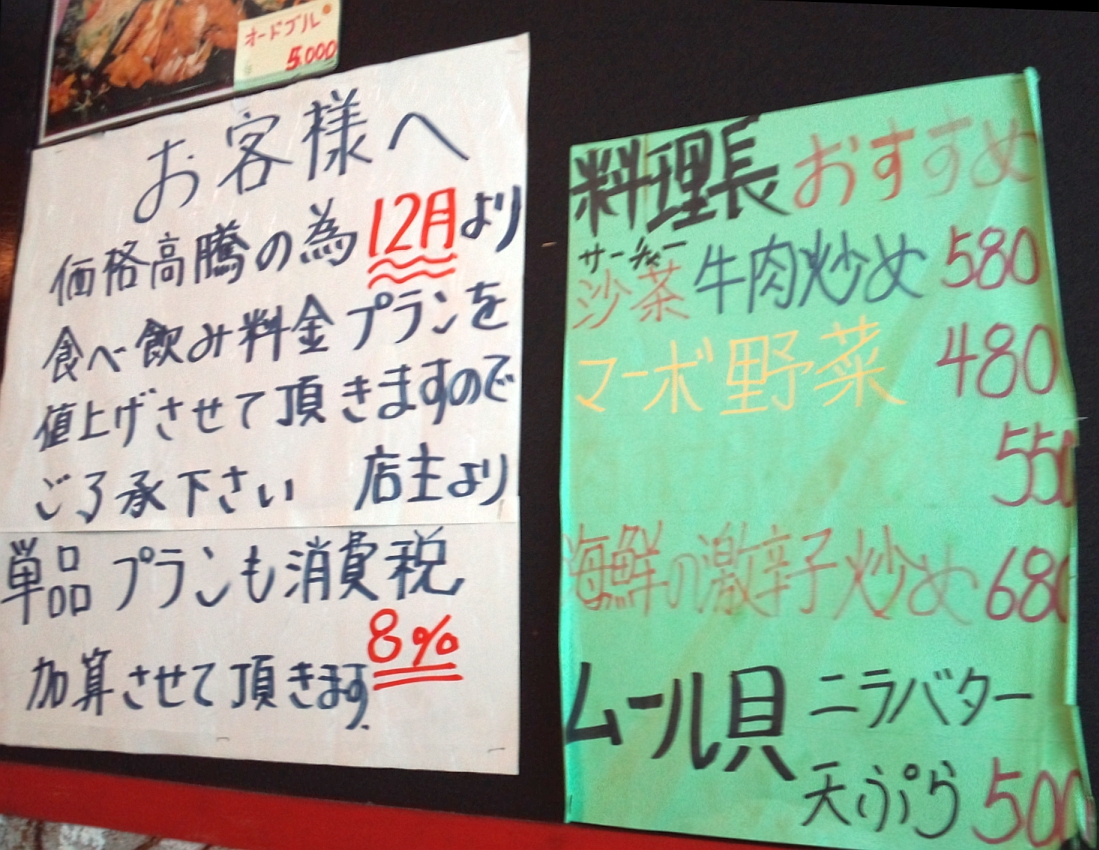 オードブル
5.000
お客様へ
価格高騰の為12月より
食べ飲み料金プランを
値上げさせて頂きますので
ご了承下さい 店主より
単品プランも消費税
8%
加算させて頂きます
料理長おすすめ
サーチャー
沙茶牛肉炒め 580
マーボ野菜 480
550
海鮮の激辛子炒め 680
ムール貝 ニラバター
天ぷら 500